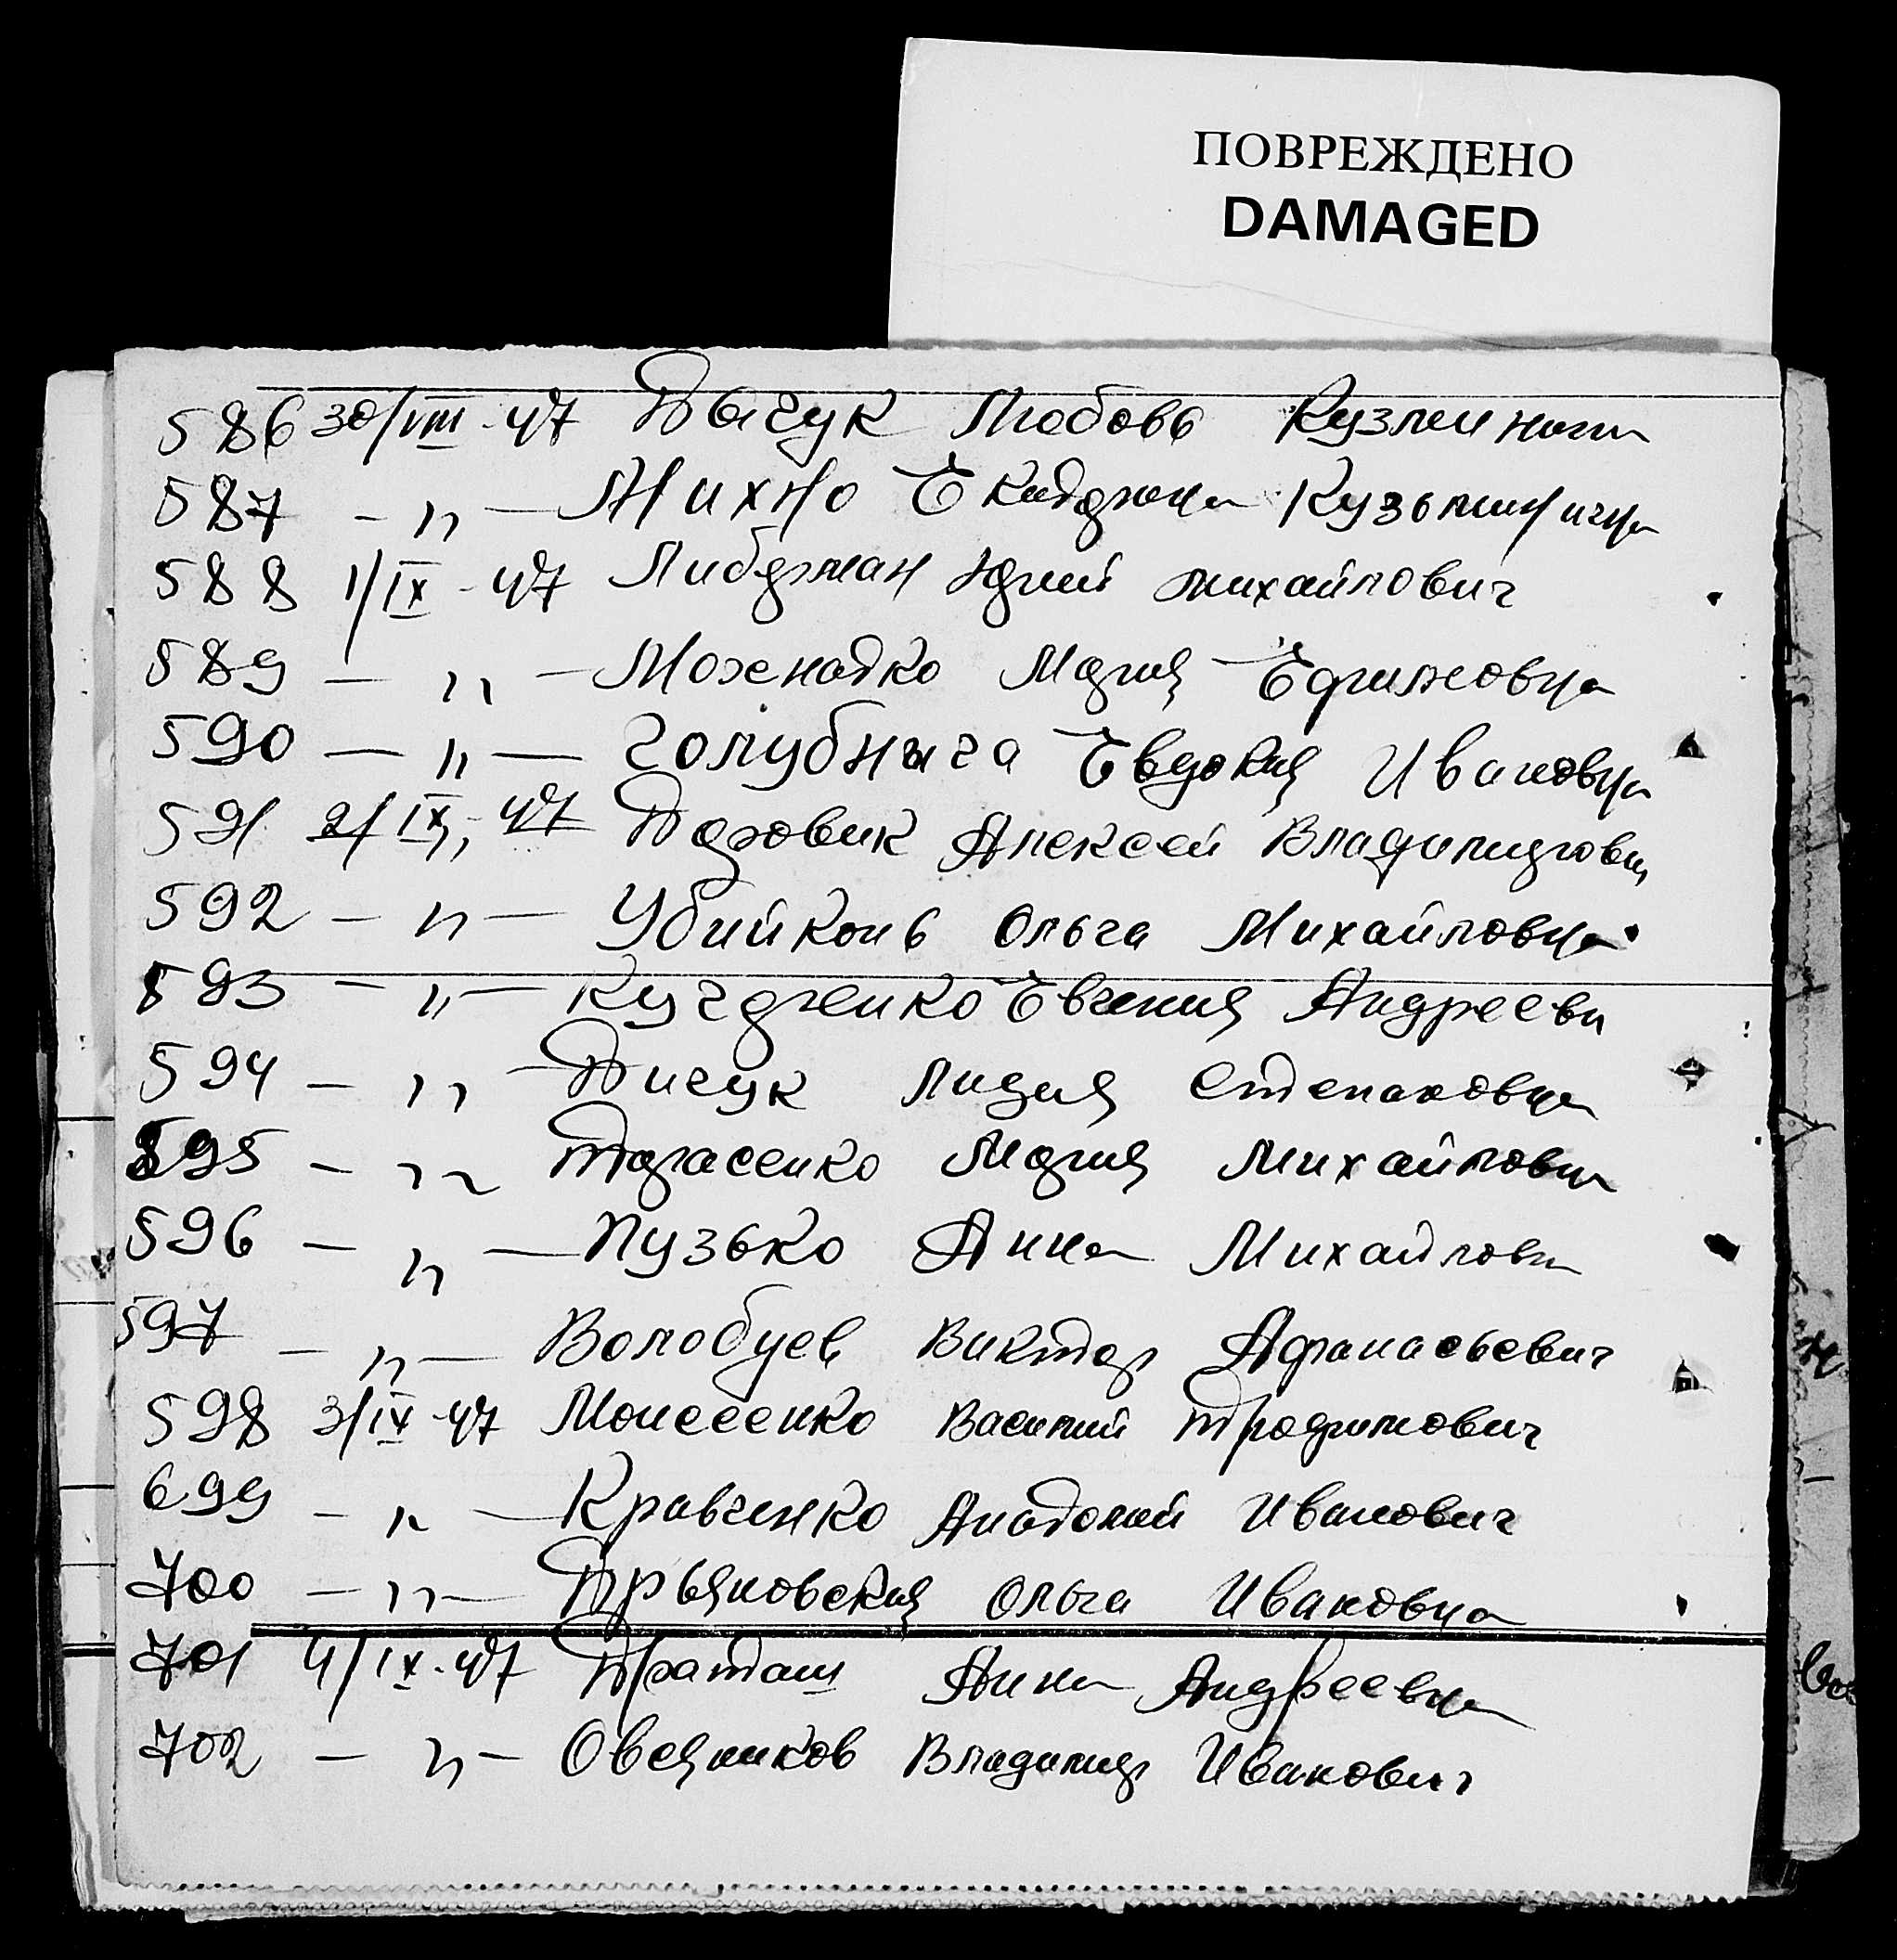 ПОВРЕЖДЕНО
DAMAGED
586 30/VIII-47 Дычук Любовь
587 — „ — Михно Екатерина Кузьминична
588 1/IX-47 Либерман Юрий Михайлович
589 — „ — Мария Ефимовна
590 — „ — Голубныча Евдокия Ивановна
591 2/IX-47 Алексей Владимирович
592 — „ — Убийконь Ольга Михайловна
593 — „ — Кучеренко Евгения Андреевн
594 — „ — Дичук Лидия Степановна
595 — „ Тарасенко Мария Михайловн
596 — „ — Пузько Анна Михайловн
597 — „ — Волобуев Виктор Афанасьевич
598 3/IX-47 Моисеенко Василий Трофимович
699 — „ — Кравченко Анатолий Иванович
700 — „ — Ольга Ивановна
701 4/IX-47 Анна Андреевна
702 — „ — Овсяников Владимир Иванович